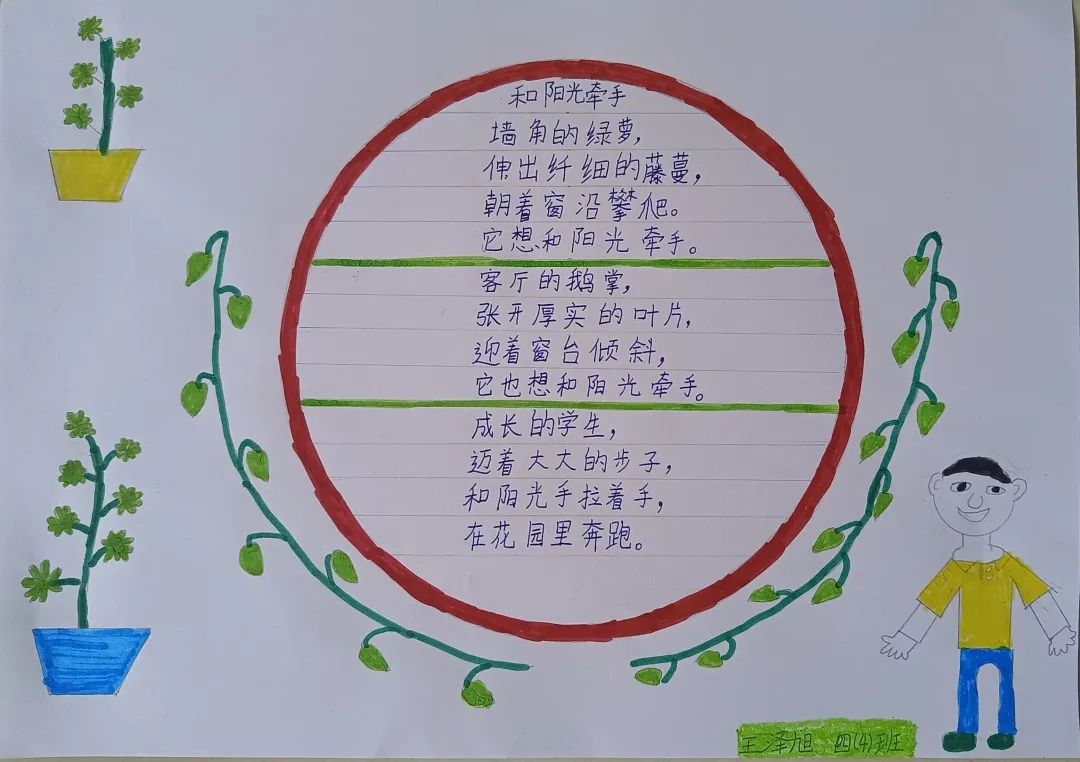 和阳光牵手
墙角的绿萝，
伸出纤细的藤蔓，
朝着窗沿攀爬。
它想和阳光牵手。
客厅的鹅掌，
张开厚实的叶片，
迎着窗台倾斜，
它也想和阳光牵手。
成长的学生，
迈着大大的步子，
和阳光手拉着手，
在花园里奔跑。
王泽旭 四(4)班